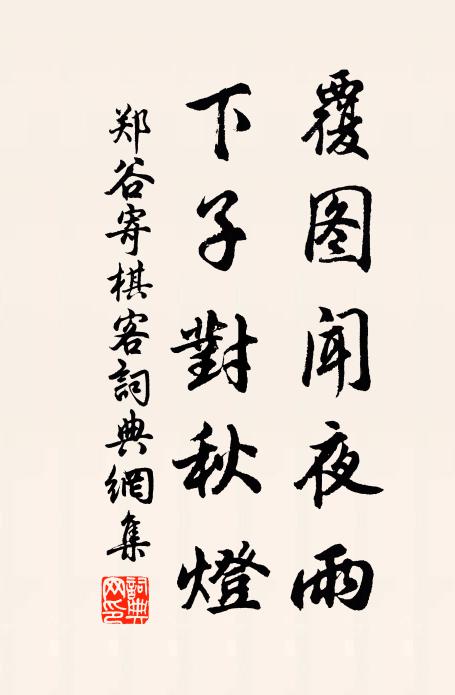 覆图闻夜雨
下子對秋燈
郑谷寄棋客詞典網集
詞典网印